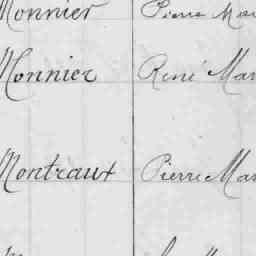 Monnier Pierre
Monnier René Mar
Montraux Pierre Mar